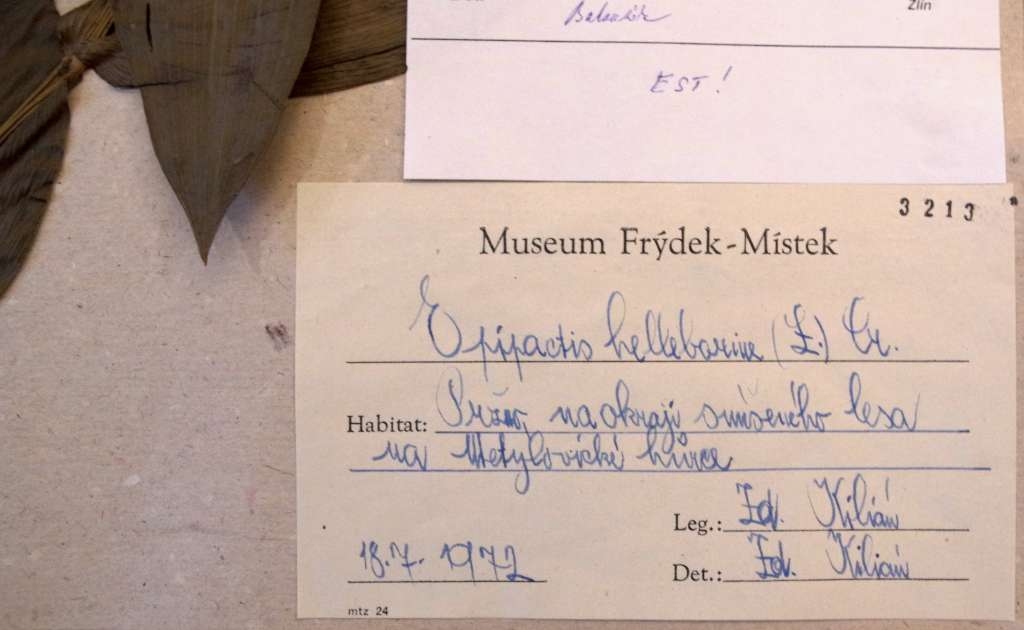 Zlín
EST!
3213
Museum Frýdek-Místek
Epipactis helleborine (L.) Cr.
Habitat: Pržno, na okraji smíšeného lesa
na Metylovické hůrce
Leg.: Zd. Kilián
18.7.1972 Det.: Zd. Kilián
mtz 24